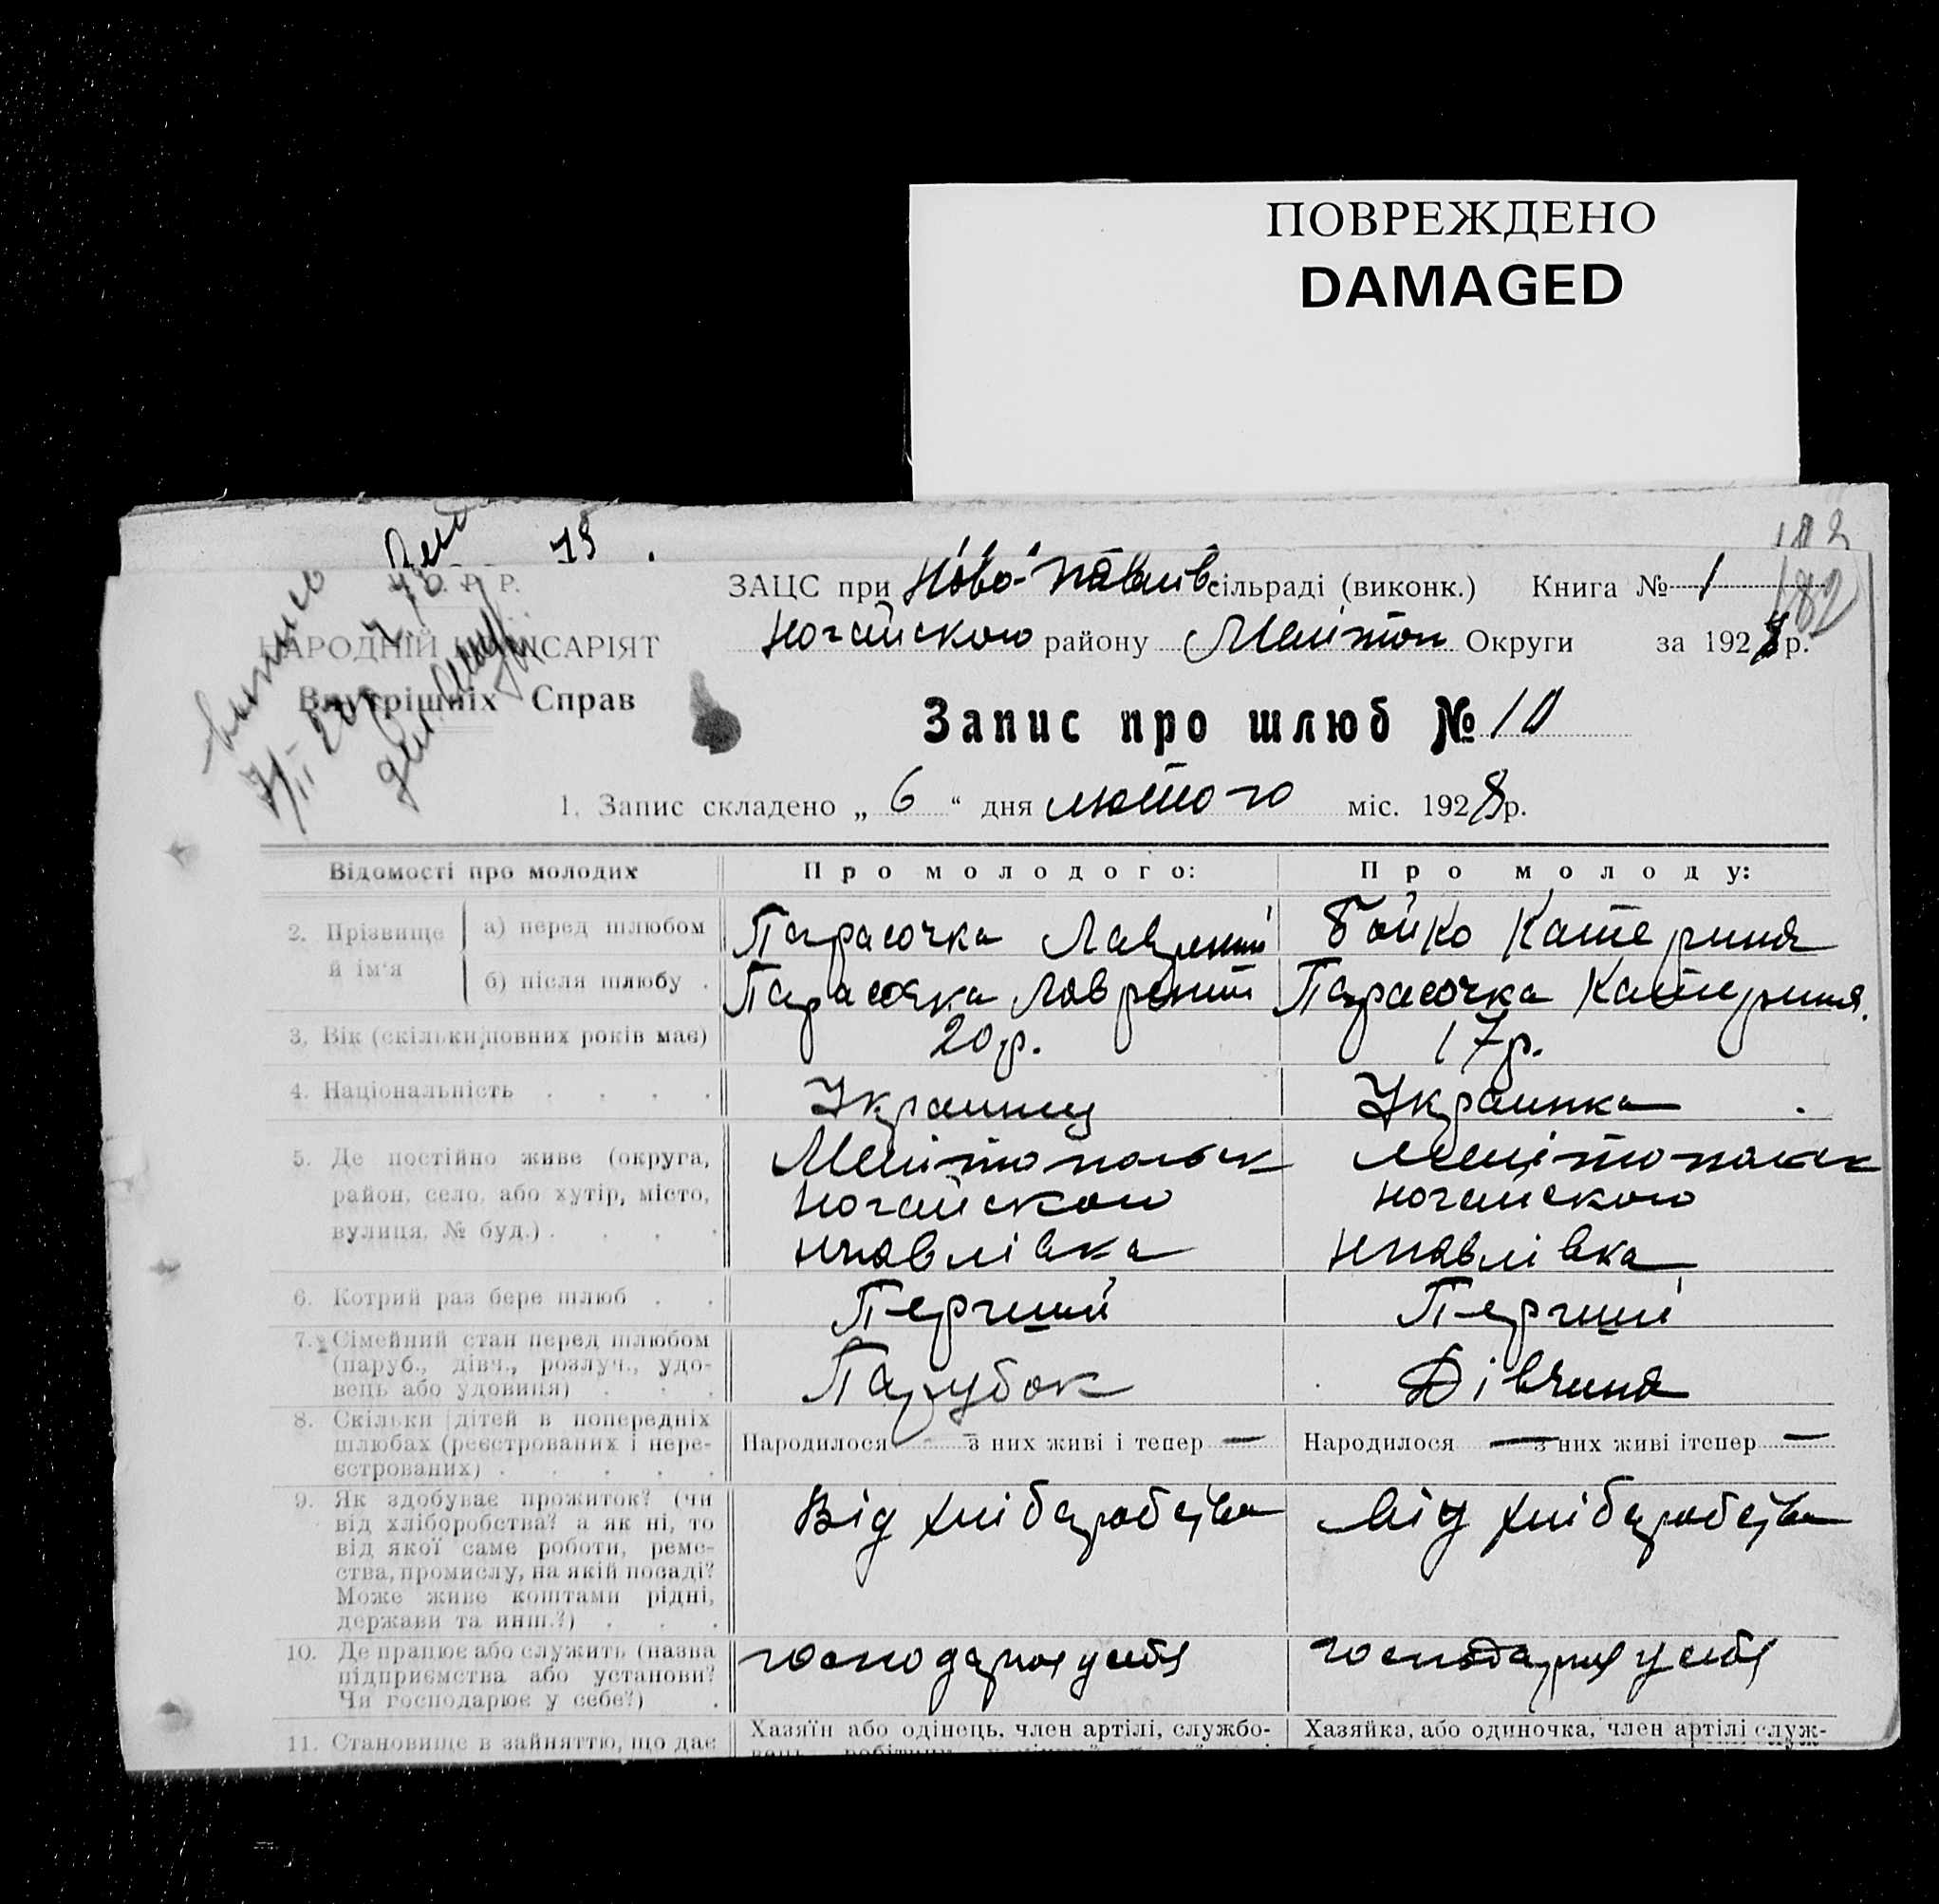 ПОВРЕЖДЕНО
DAMAGED
75
182
ЗАЦС при Ново-Павлів сільраді (виконк.) Книга № 1
НАРОДНІЙ КОМІСАРІЯТ
Ногайского району Мелітоп Округи за 1928 р.
Внутрішніх Справ
Запис про шлюб № 10
1. Запис складено „ 6 “ дня лютого міс. 1928 р.
Відомості про молодих Про молодого: Про молоду:
2. Прізвище й ім'я а) перед шлюбом Парасочка Лаврентий Бойко Катерина
б) після шлюбу . Парасочка Лаврентий Парасочка Катерина.
3. Вік (скільки повних років має) 20 р. 17 р.
4. Національність . . . . Украинец Украинка
5. Де постійно живе (округа, Мелітопольск Мелітопольск
район, село, або хутір, місто, Ногайского Ногайского
вулиця, № буд.) . . . . Нпавлівка Нпавлівка
6. Котрий раз бере шлюб . . Перший Перший
7. Сімейний стан перед шлюбом
(паруб., дівч., розлуч., удо-
вець або удовиця) . . . Парубок Дівчина
8. Скільки дітей в попередніх
шлюбах (реєстрованих і нере- Народилося - з них живі і тепер — Народилося — з них живі ітепер —
єстрованих) . . . . .
9. Як здобуває прожиток? (чи Від хліборобства Від хліборобства
від хліборобства? а як ні, то
від якої саме роботи, реме-
ства, промислу, на якій посаді?
Може живе коштами рідні,
держави та инш.?) . . .
10. Де працює або служить (назва господарює у себя господарює у себя
підприємства або установи?
Чи господарює у себе?) .
11. Становище в зайняттю, що дає Хазяїн або одінець, член артілі, службо- Хазяйка, або одиночка, член артілі служ-